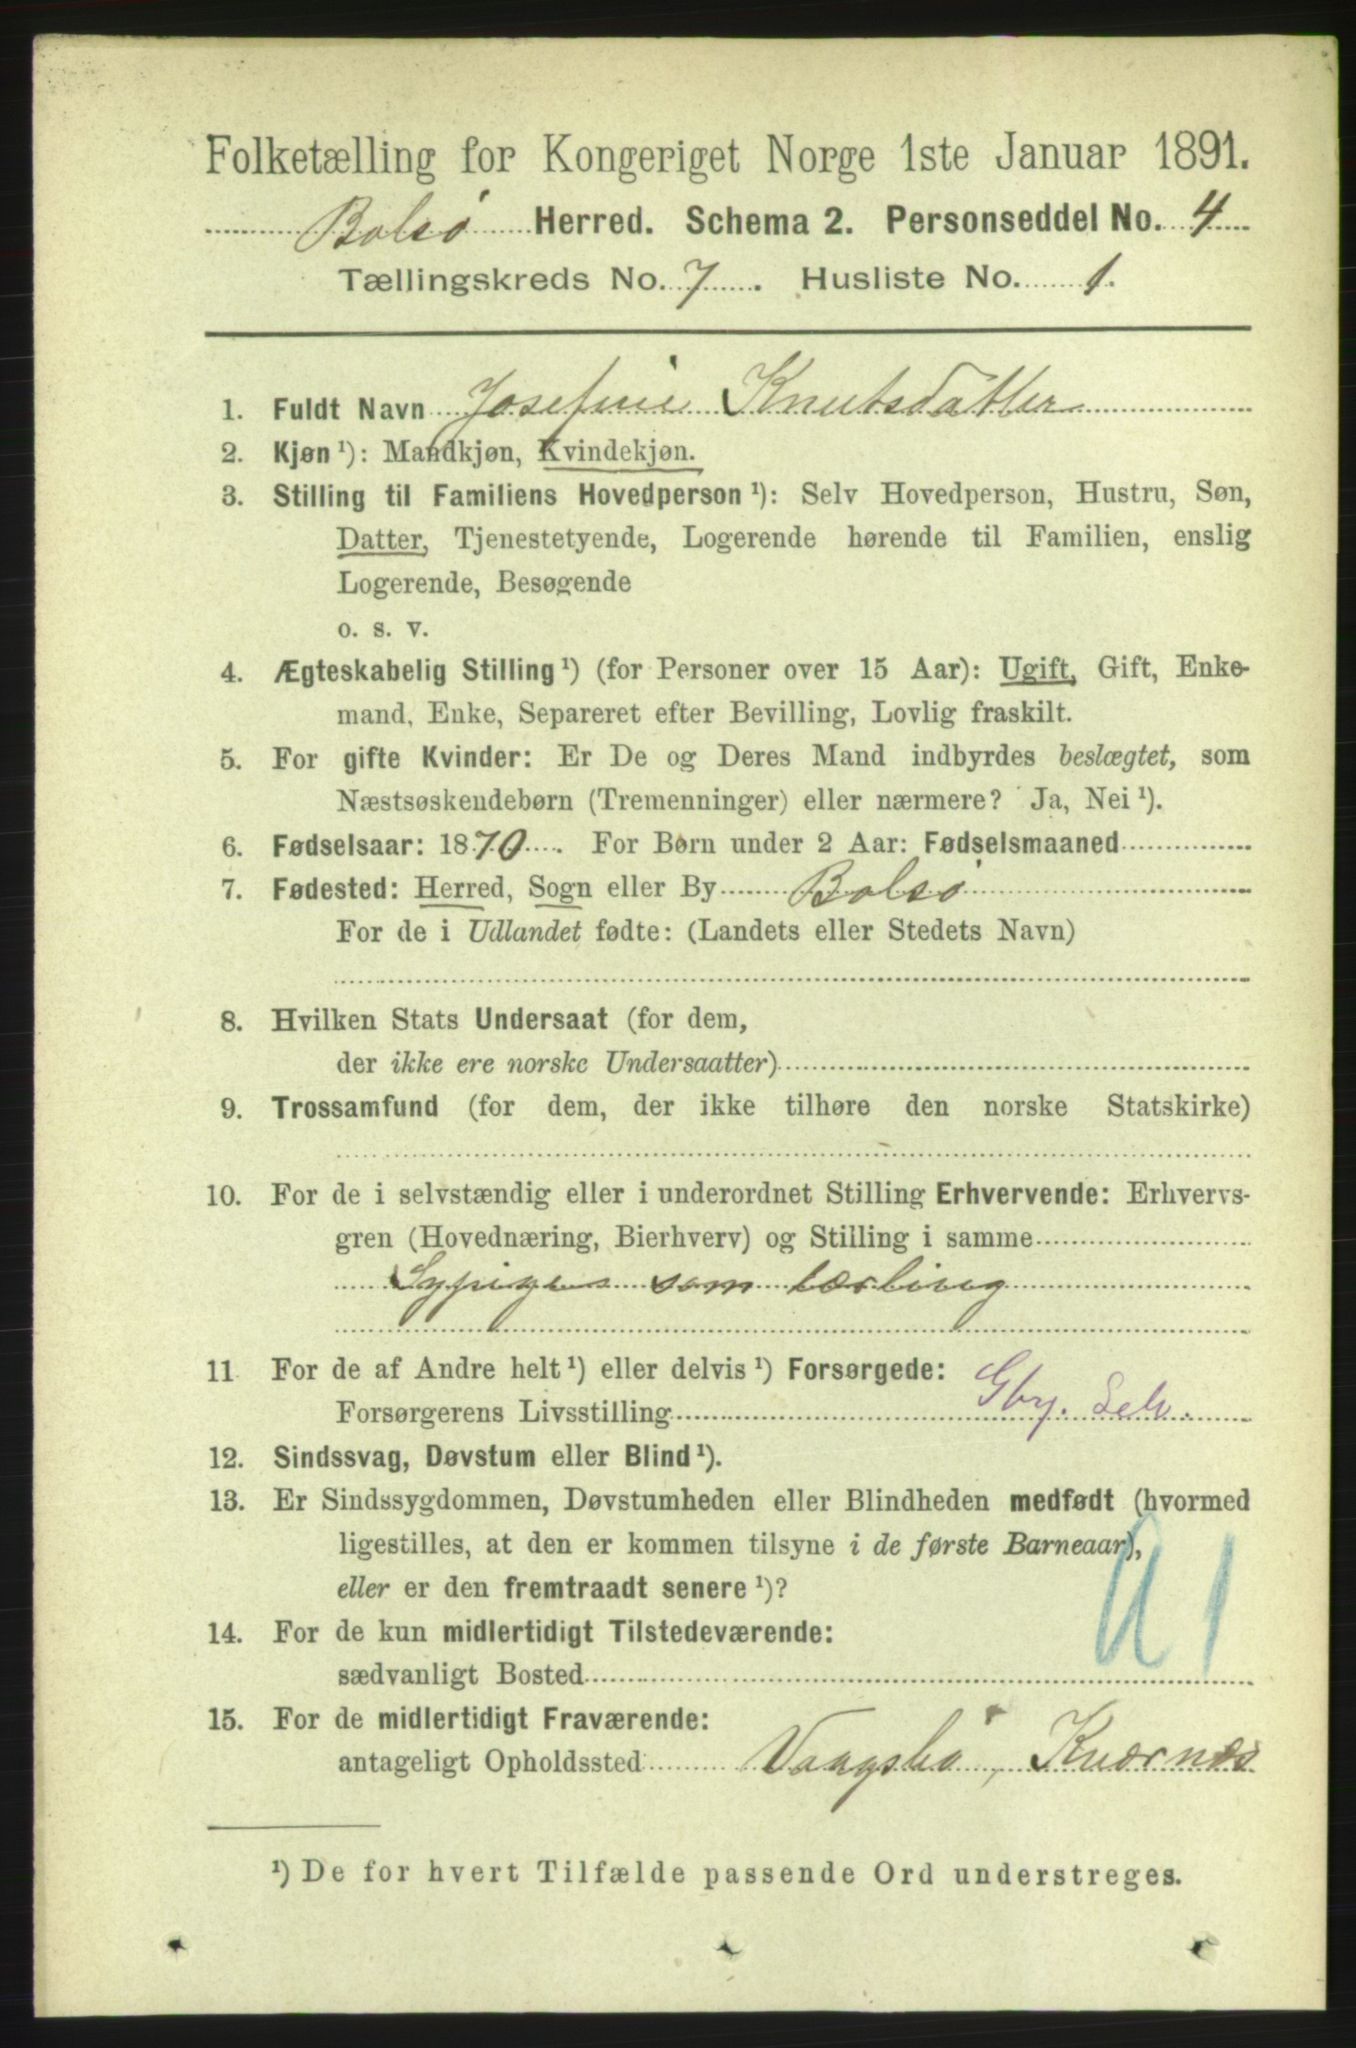 Folketælling for Kongeriget Norge 1ste Januar 1891.
Bolsø Herred. Schema 2. Personseddel No. 4
Tællingskreds No. 7. Husliste No. 1.
1. Fuldt Navn Josefine Knutsdatter
2. Kjøn ¹): Mandkjøn, Kvindekjøn.
3. Stilling til Familiens Hovedperson ¹): Selv Hovedperson, Hustru, Søn,
Datter, Tjenestetyende, Logerende hørende til Familien, enslig
Logerende, Besøgende
o. s. v.
4. Ægteskabelig Stilling ¹) (for Personer over 15 Aar): Ugift, Gift, Enke-
mand, Enke, Separeret efter Bevilling, Lovlig fraskilt.
5. For gifte Kvinder: Er De og Deres Mand indbyrdes beslægtet, som
Næstsøskendebørn (Tremenninger) eller nærmere? Ja, Nei ¹).
6. Fødselsaar: 1870. For Børn under 2 Aar: Fødselsmaaned
7. Fødested: Herred, Sogn eller By Bolsø
For de i Udlandet fødte: (Landets eller Stedets Navn)
8. Hvilken Stats Undersaat (for dem,
der ikke ere norske Undersaatter)
9. Trossamfund (for dem, der ikke tilhøre den norske Statskirke)
10. For de i selvstændig eller i underordnet Stilling Erhvervende: Erhvervs-
gren (Hovednæring, Bierhverv) og Stilling i samme
som lærling
11 For de af Andre helt ¹) eller delvis ¹) Forsørgede:
Forsørgerens Livsstilling Gbr. Selv.
12. Sindssvag, Døvstum eller Blind ¹).
13. Er Sindssygdommen, Døvstumheden eller Blindheden medfødt (hvormed
ligestilles, at den er kommen tilsyne i de første Barneaar),
eller er den fremtraadt senere ¹)?
14. For de kun midlertidigt Tilstedeværende:
sædvanligt Bosted
15. For de midlertidigt Fraværende:
antageligt Opholdssted Vaagsbø, Knærnæs
¹) De for hvert Tilfælde passende Ord understreges.